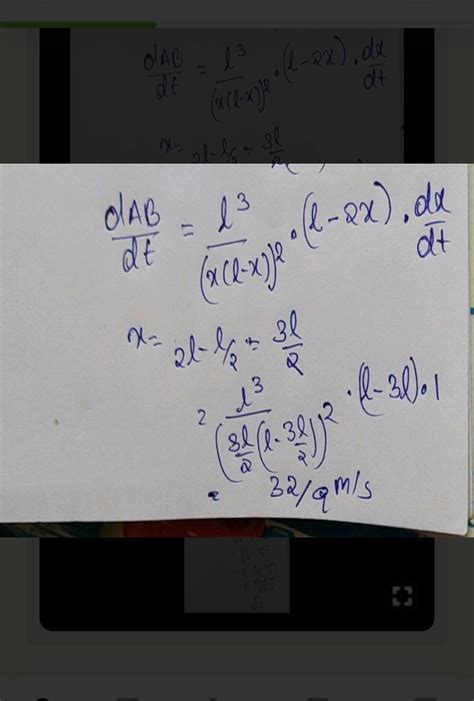 dAB/dt = l³/(x(l-x))² · (l-2x) · dx/dt
x= 2l-l/2 = 3l/2
dAB/dt = l³/(x(l-x))² · (l-2x) · dx/dt
x= 2l-l/2 = 3l/2
= l³/(3l/2(l-3l/2))² · (l-3l)·1
= 32/9 m/s